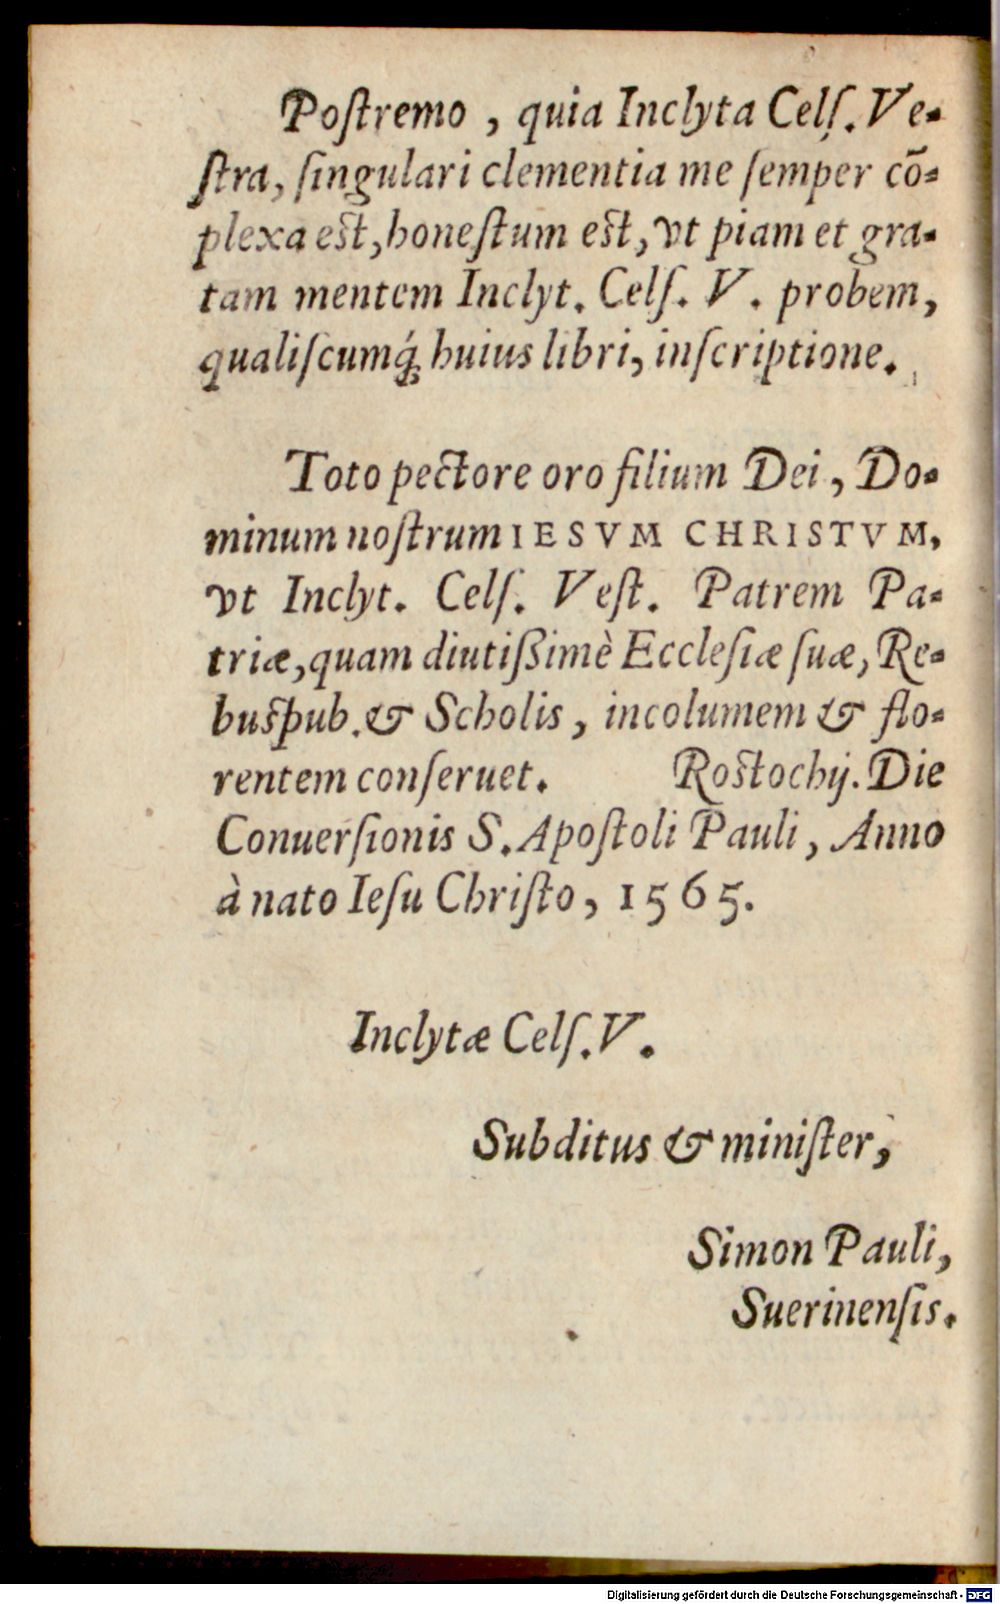 Postremo, quia Inclyta Celſ. Ve-
ſtra, ſingulari clementia me ſemper cõ-
plexa est, honeſtum est, vt piam et gra-
tam mentem Inclyt. Celſ. V. probem,
qualiſcumq́ꝫ huius libri, inſcriptione.
Toto pectore oro filium Dei, Do-
minum noſtrum IESVM CHRISTVM,
vt Inclyt. Celſ. Veſt. Patrem Pa-
triæ, quam diutiſsimè Eccleſiæ ſuæ, Re-
buspub. & Scholis, incolumem & flo-
rentem conſeruet. Rostochij. Die
Conuerſionis S. Apoſtoli Pauli, Anno
à nato Ieſu Chriſto, 1565.
Inclytæ Celſ. V.
Subditus & miniſter,
Simon Pauli,
Suerinenſis.
Digitalisierung gefördert durch die Deutsche Forschungsgemeinschaft - DFG